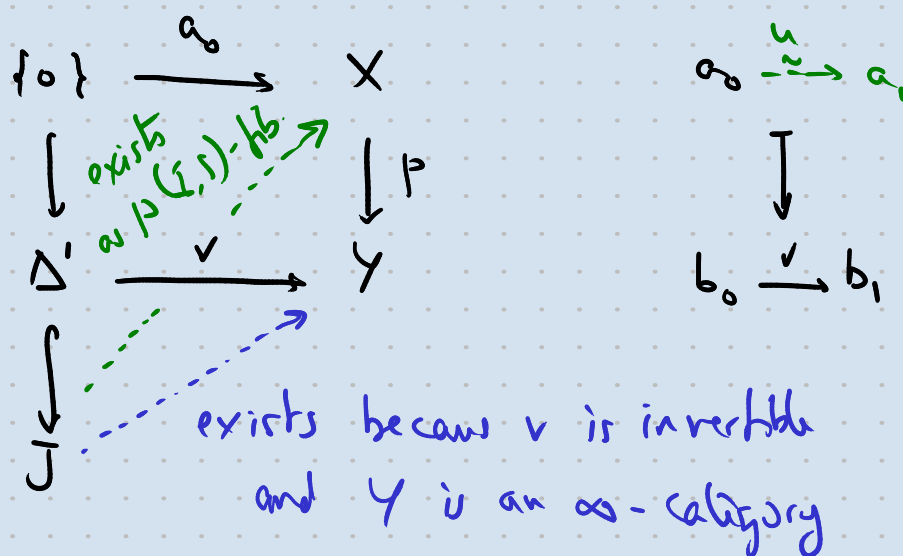 {0} a₀ X u
a₀ ~ a₁
exists
as p (J,S)-fib.
p
Δ¹ v Y b₀ v b₁
J
exists because v is invertible
and Y is an ∞-category